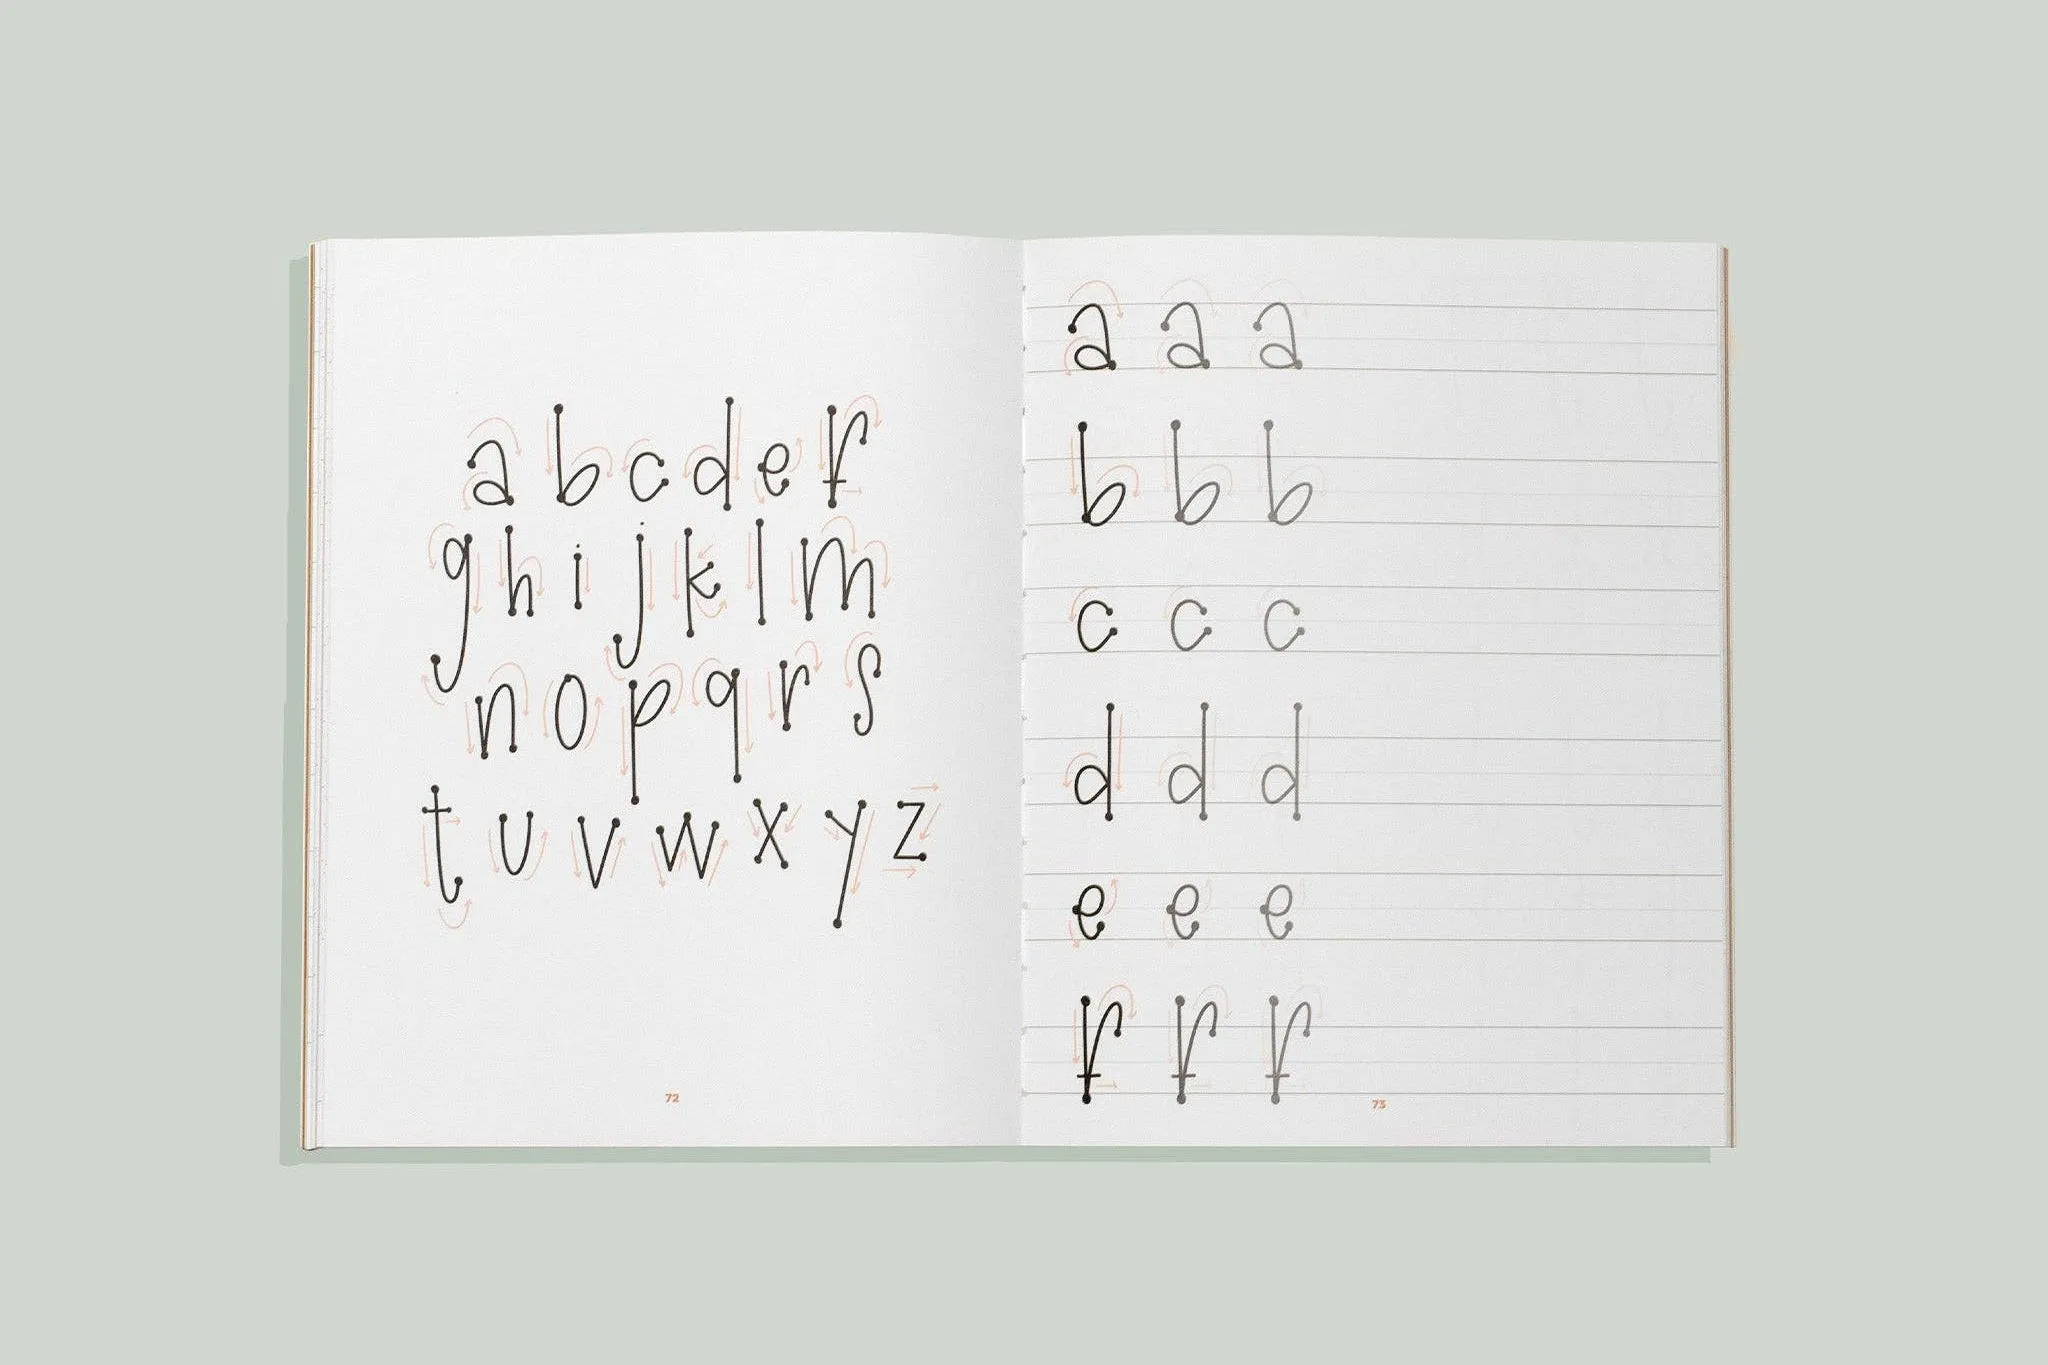 a b c d e f
g h i j k l m
n o p q r s
t u v w x y z
72
a a a
b b b
c c c
d d d
e e e
f f f
73